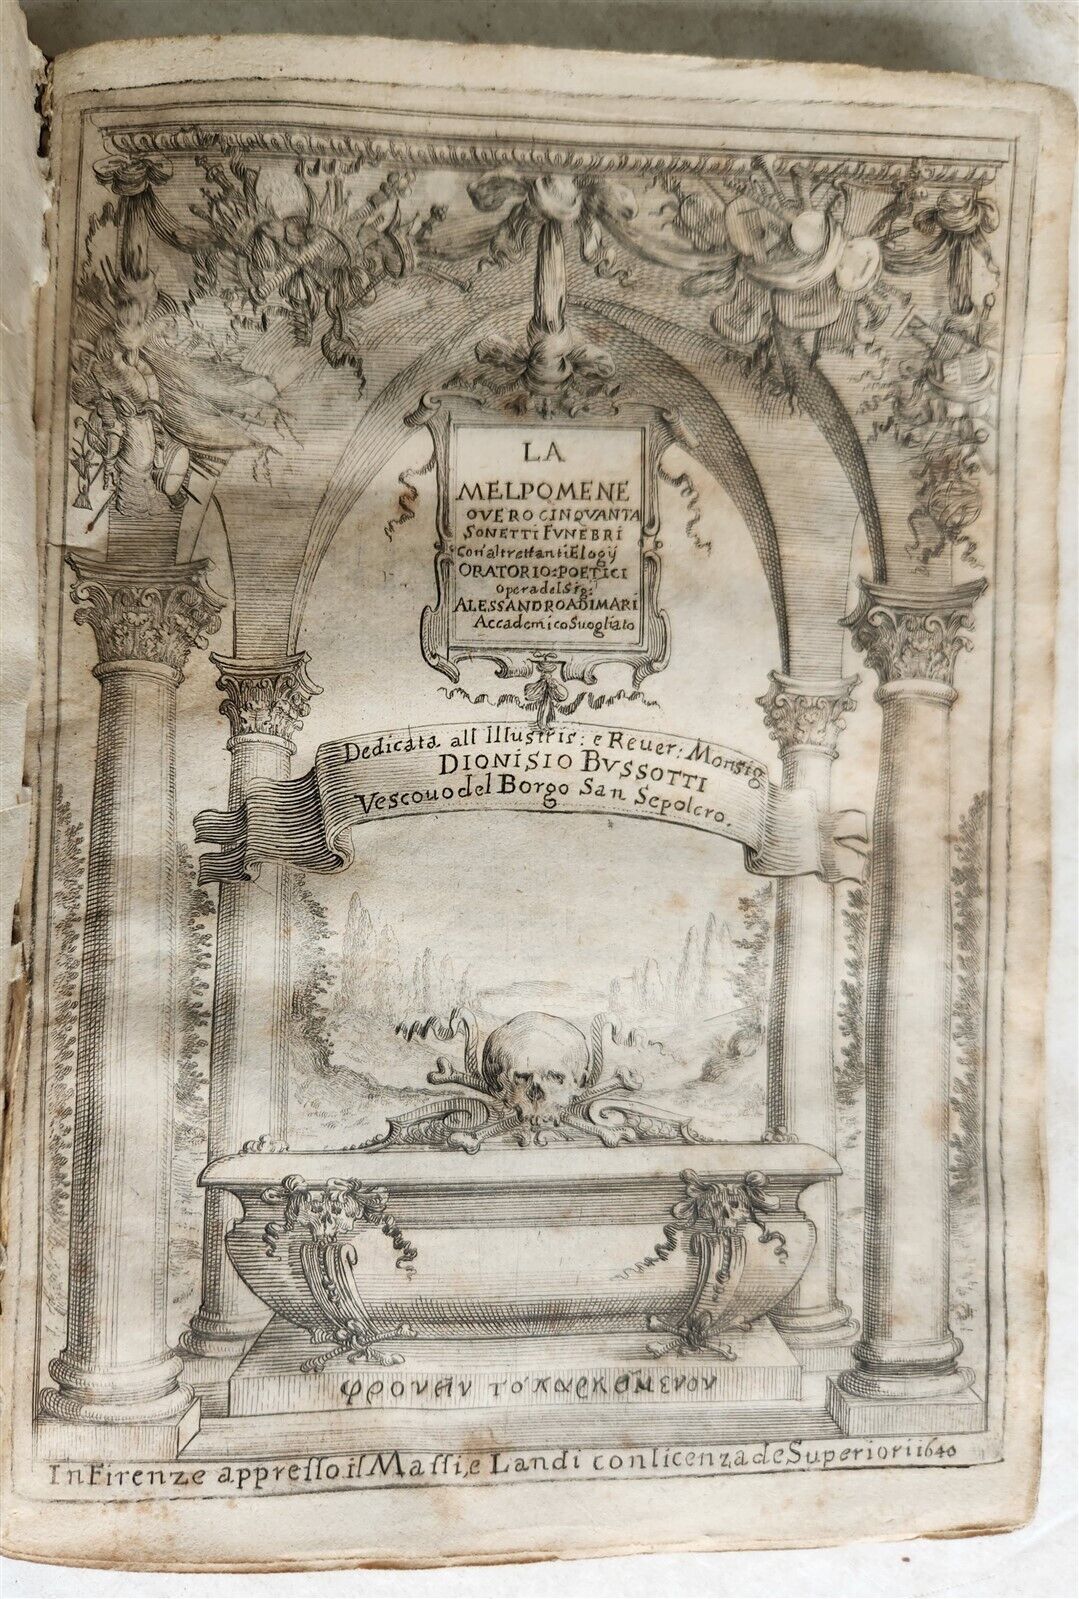 LA
MELPOMENE
OVERO CINQVANTA
SONETTI FVNEBRI
Con altrettanti Elogÿ
ORATORIO: POETICI
Opera del Sig:
ALESSANDRO ADIMARI
Accademico Suogliato
Dedicata all Illustris: e Reuer: Monsig
DIONISIO BVSSOTTI
Vescouo del Borgo San Sepolcro.
In Firenze appresso il Massi, e Landi con licenza de Superiori 1640